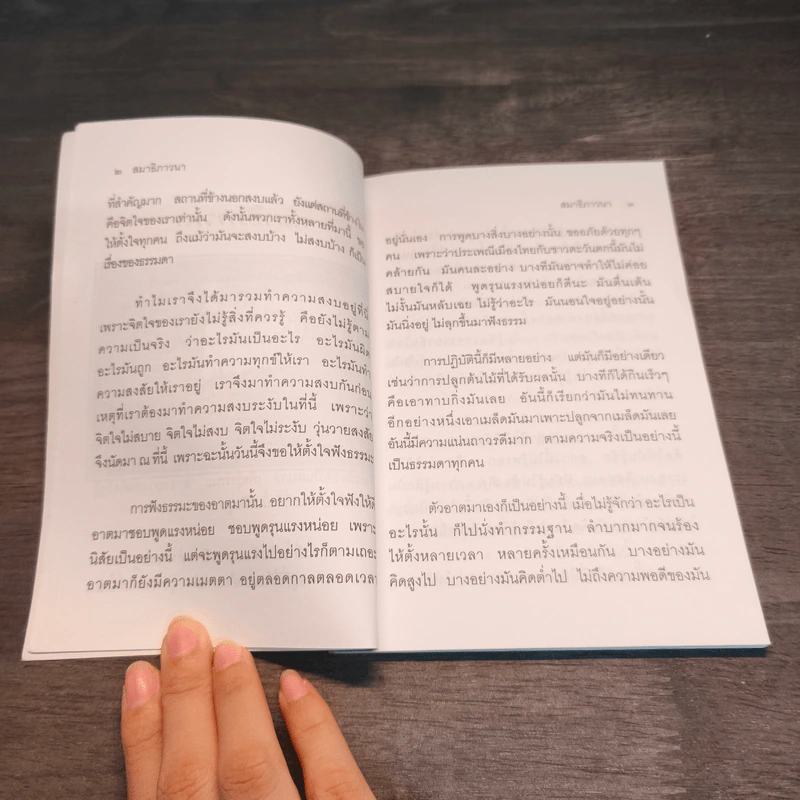 ๒ สมาธิภาวนา
ที่สำคัญมาก สถานที่ข้างนอกสงบแล้ว ยังแต่สถานที่ข้างใน
คือจิตใจของเราเท่านั้น ดังนั้นพวกเราทั้งหลายที่มานี้ ขอ
ให้ตั้งใจทุกคน ถึงแม้ว่ามันจะสงบบ้าง ไม่สงบบ้าง ก็เป็น
เรื่องของธรรมดา
ทำไมเราจึงได้มารวมทำความสงบอยู่ที่นี่
เพราะจิตใจของเรายังไม่รู้สิ่งที่ควรรู้ คือยังไม่รู้ตาม
ความเป็นจริง ว่าอะไรมันเป็นอะไร อะไรมันผิด
อะไรมันถูก อะไรมันทำความทุกข์ให้เรา อะไรมันทำ
ความสงสัยให้เราอยู่ เราจึงมาทำความสงบกันก่อน
เหตุที่เราต้องมาทำความสงบระงับในที่นี้ เพราะว่า
จิตใจไม่สบาย จิตใจไม่สงบ จิตใจไม่ระงับ วุ่นวายสงสัย
จึงนัดมา ณ ที่นี้ เพราะฉะนั้นวันนี้จึงขอให้ตั้งใจฟังธรรมะ
การฟังธรรมะของอาตมานั้น อยากให้ตั้งใจฟังให้ดี
อาตมาชอบพูดแรงหน่อย ชอบพูดรุนแรงหน่อย เพราะ
นิสัยเป็นอย่างนี้ แต่จะพูดรุนแรงไปอย่างไรก็ตามเถอะ
อาตมาก็ยังมีความเมตตา อยู่ตลอดกาลตลอดเวลา
สมาธิภาวนา ๓
อยู่นั่นเอง การพูดบางสิ่งบางอย่างนั้น ขออภัยด้วยทุกๆ
คน เพราะว่าประเพณีเมืองไทยกับชาวตะวันตกนี้มันไม่
คล้ายกัน มันคนละอย่าง บางทีมันอาจทำให้ไม่ค่อย
สบายใจก็ได้ พูดรุนแรงหน่อยก็ดีนะ มันตื่นเต้น
ไม่งั้นมันหลับเฉย ไม่รู้ว่าอะไร มันนอนใจอยู่อย่างนั้น
มันนิ่งอยู่ ไม่ลุกขึ้นมาฟังธรรม
การปฏิบัตินี้ก็มีหลายอย่าง แต่มันก็มีอย่างเดียว
เช่นว่าการปลูกต้นไม้ที่ได้รับผลนั้น บางทีก็ได้กินเร็วๆ
คือเอาทาบกิ่งมันเลย อันนี้ก็เรียกว่ามันไม่ทนทาน
อีกอย่างหนึ่งเอาเมล็ดมันมาเพาะปลูกจากเมล็ดมันเลย
อันนี้มีความแน่นถาวรดีมาก ตามความจริงเป็นอย่างนี้
เป็นธรรมดาทุกคน
ตัวอาตมาเองก็เป็นอย่างนี้ เมื่อไม่รู้จักว่า อะไรเป็น
อะไรนั้น ก็ไปนั่งทำกรรมฐาน ลำบากมากจนร้อง
ให้ตั้งหลายเวลา หลายครั้งเหมือนกัน บางอย่างมัน
คิดสูงไป บางอย่างมันคิดต่ำไป ไม่ถึงความพอดีของมัน